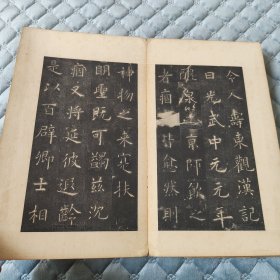 令人壽東觀漢記
曰光武中元元年
醴泉出京師飲之
者痼疾皆愈然則
神物之來寔扶
明聖既可蠲茲沉
痼又將延彼遐齡
是以百辟卿士相